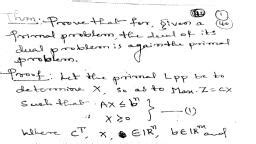 Thm. Prove that for given a
primal problem the dual of its
dual problem is again the primal
problem.
Proof: Let the primal Lpp be to
determine X, so as to Max. Z = CX
Such that AX ≤ b
X ≥ 0 } — (1)
Where Cᵀ, X, ∈ ℝⁿ, b ∈ ℝᵐ and